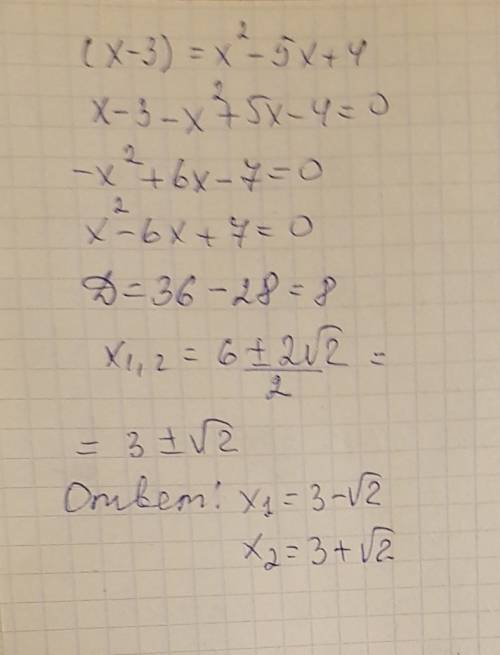 (x-3) = x² - 5x + 4
x - 3 - x² + 5x - 4 = 0
-x² + 6x - 7 = 0
x² - 6x + 7 = 0
Д = 36 - 28 = 8
x₁,₂ = (6 ± 2√2)/2 =
= 3 ± √2
Ответ: x₁ = 3 - √2
x₂ = 3 + √2